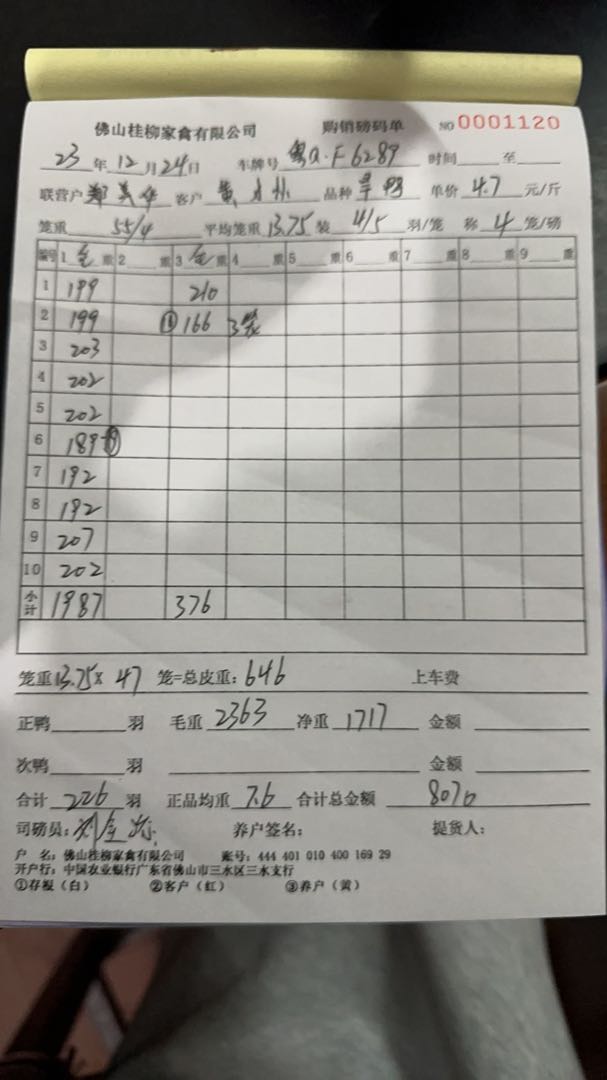 佛山桂柳家禽有限公司 购销磅码单 NO 0001120
23年12月24日 车牌号 粤Q·F6289 时间 至
联营户 郑美华 客户 黄 品种 旱鸭 单价 4.7 元/斤
笼重 55/4 平均笼重 13.75 装 4/5 羽/笼 称 4 笼/磅
编号 1 毛 重 2 重 3 毛 重 4 重 5 重 6 重 7 重 8 重 9 重
1 199 210
2 199 ① 166 3笼
3 203
4 202
5 202
6 189
7 192
8 192
9 207
10 202
小计 1987 376
笼重 13.75× 47 笼=总皮重: 646 上车费
正鸭 羽 毛重 2363 净重 1717 金额
次鸭 羽 金额
合计 226 羽 正品均重 7.6 合计总金额 8070
司磅员: 养户签名: 提货人:
户 名: 佛山桂柳家禽有限公司 账号: 444 401 010 400 169 29
开户行: 中国农业银行广东省佛山市三水区三水支行
①存根(白) ②客户(红) ③养户(黄)